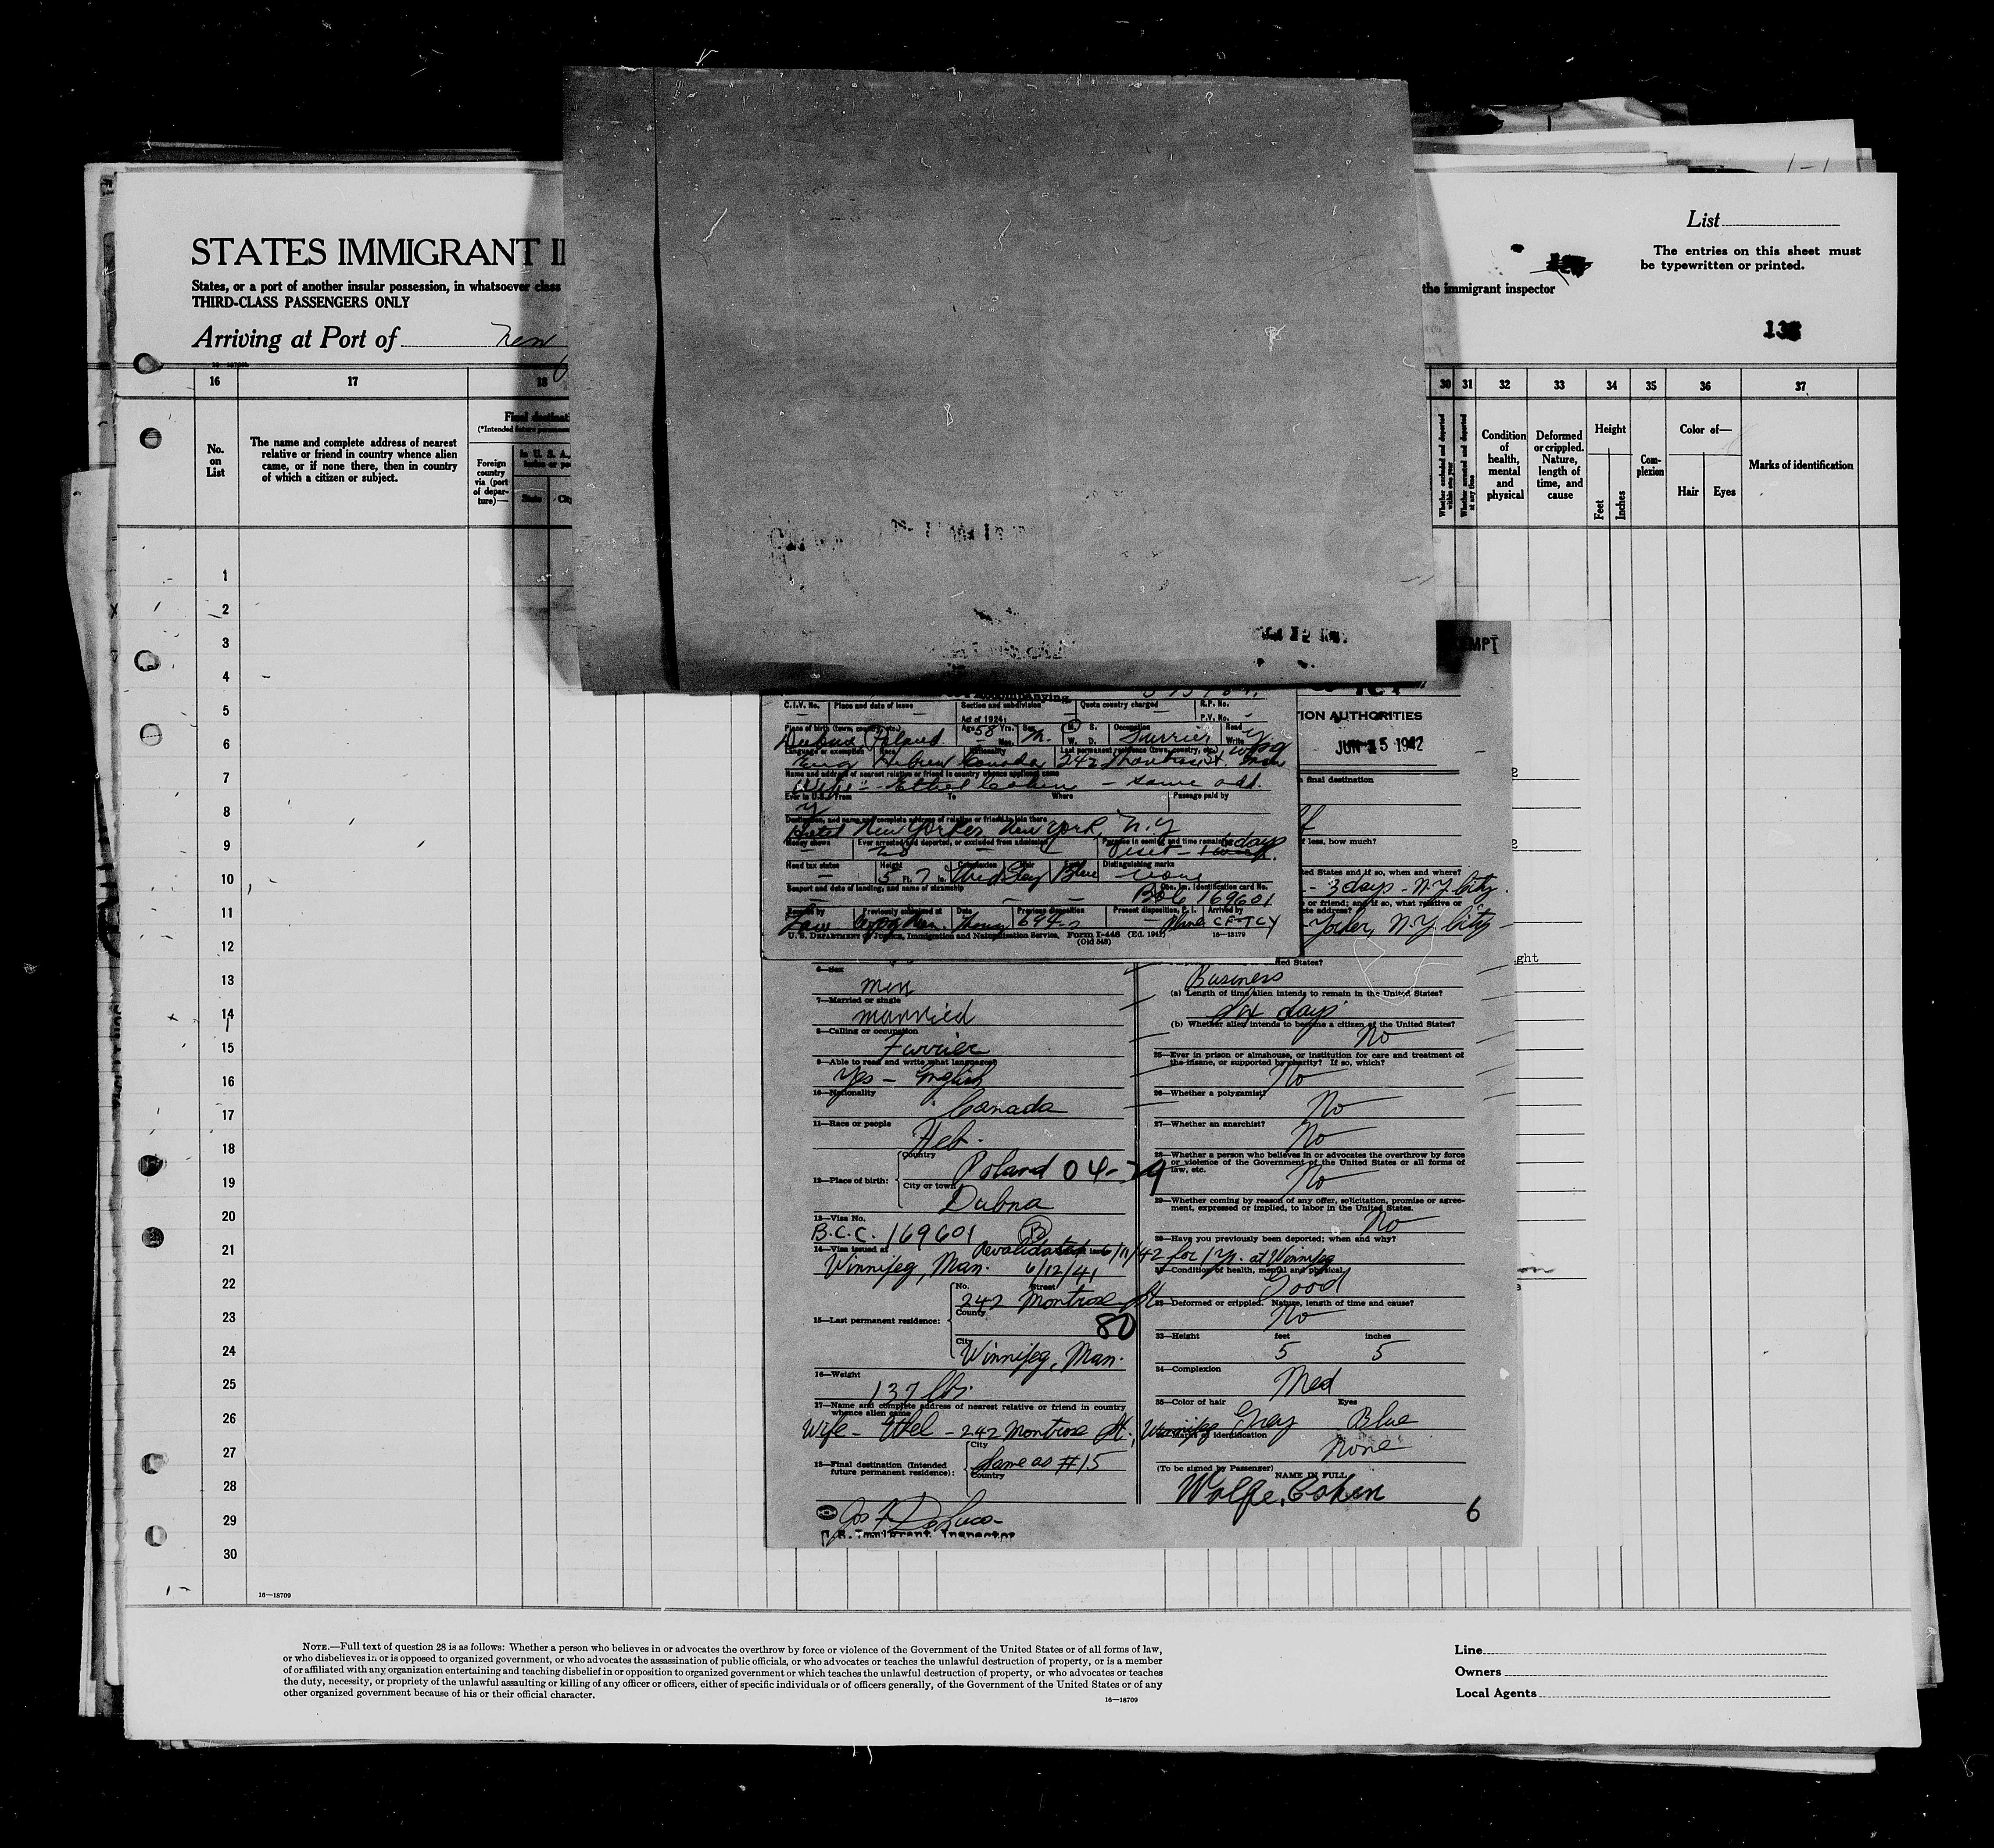 List
STATES IMMIGRANT
The entries on this sheet must
be typewritten or printed.
States, or a port of another insular possession, in whatsoever class
the immigrant inspector
THIRD-CLASS PASSENGERS ONLY
Arriving at Port of New
16 17 18 30 31 32 33 34 35 36 37
No.
on
List
The name and complete address of nearest
relative or friend in country whence alien
came, or if none there, then in country
of which a citizen or subject.
Foreign
country
via (port
of depar-
ture)—
State
Whether excluded and deported
within one year
Whether arrested and deported
at any time
Condition
of
health,
mental
and
physical
Deformed
or crippled.
Nature,
length of
time, and
cause
Height
Feet
Inches
Com-
plexion
Color of—
Hair Eyes
Marks of identification
1
2
3
4
5
6
7
8
9
10
11
12
13
14
15
16
17
18
19
20
21
22
23
24
25
26
27
28
29
30
16—18709
Accompanying
C.I.V. No. Place and date of issue Section and subdivision Quota country charged R.P. No.
Act of 1924: P.V. No.
Place of birth (town, country, etc.) Age 58 Yrs. Sex M. S. Occupation Read
Dubno Poland Mos. M. W. D. Furrier Write y
Language or exemption Race Nationality Last permanent residence (town, country, etc.)
Eng Hebrew Canada 242 Montrose St.
Name and address of nearest relative or friend in country whence applicant came
Wife - Ethel Cohen - same add.
Ever in U.S. From To Where Passage paid by
y
Destination, and name and complete address of relative or friend to join there
Hotel New Yorker, New York, N.Y
Money shown Ever arrested and deported, or excluded from admission Purpose in coming and time remain
days
Visit - 1 week.
Head tax status Height Complexion Hair Distinguishing marks
5 Ft. 7 In. Med Gray Blue none
Seaport and date of landing, and name of steamship Identification card No.
169601
Previously examined at Date Previous disposition Present disposition Arrived by
694-2 Plane CF-TCY
U. S. DEPARTMENT OF JUSTICE, Immigration and Naturalization Service. Form I-448 (Ed. 1941) 16—13179
(Old 548)
ION AUTHORITIES
JUN 15 1942
final destination
f less, how much?
ted States and if so, when and where?
- 3 days - N.Y. City.
or friend; and if so, what relative or
te address?
Yorker, N.Y. City -
6—Sex
men
7—Married or single
married
8—Calling or occupation
Furrier
9—Able to read and write what language?
Yes - English
10—Nationality
Canada
11—Race or people
Heb.
12—Place of birth:
Country
Poland 04-29
City or town
Dubna
13—Visa No.
B.C.C. 169601 B
14—Visa issued at
Revalidated 6/11/42 for 1 yr. at Winnipeg
Winnipeg, Man. 6/12/41
No. Street
242 Montrose St
County
80
15—Last permanent residence:
City
Winnipeg, Man.
16—Weight
137 lbs.
17—Name and complete address of nearest relative or friend in country
whence alien came
Wife - Ethel - 242 Montrose St., Winnipeg
18—Final destination (Intended
future permanent residence):
City
Same as #15
Country
U.S. Immigrant Inspector
ted States?
Business
(a) Length of time alien intends to remain in the United States?
six days
(b) Whether alien intends to become a citizen of the United States?
No
25—Ever in prison or almshouse, or institution for care and treatment of
the insane, or supported by charity? If so, which?
No
26—Whether a polygamist?
No
27—Whether an anarchist?
No
28—Whether a person who believes in or advocates the overthrow by force
or violence of the Government of the United States or all forms of
law, etc.
No
29—Whether coming by reason of any offer, solicitation, promise or agree-
ment, expressed or implied, to labor in the United States.
No
30—Have you previously been deported; when and why?
31—Condition of health, mental and physical.
Good
32—Deformed or crippled. Nature, length of time and cause?
No
33—Height feet inches
5 5
34—Complexion
Med
35—Color of hair Eyes
Gray Blue
36—Marks of Identification
None
(To be signed by Passenger)
NAME IN FULL
Wolfe Cohen
6
ght
NOTE.—Full text of question 28 is as follows: Whether a person who believes in or advocates the overthrow by force or violence of the Government of the United States or of all forms of law,
or who disbelieves in or is opposed to organized government, or who advocates the assassination of public officials, or who advocates or teaches the unlawful destruction of property, or is a member
of or affiliated with any organization entertaining and teaching disbelief in or opposition to organized government or which teaches the unlawful destruction of property, or who advocates or teaches
the duty, necessity, or propriety of the unlawful assaulting or killing of any officer or officers, either of specific individuals or of officers generally, of the Government of the United States or of any
other organized government because of his or their official character.
16—18709
Line
Owners
Local Agents